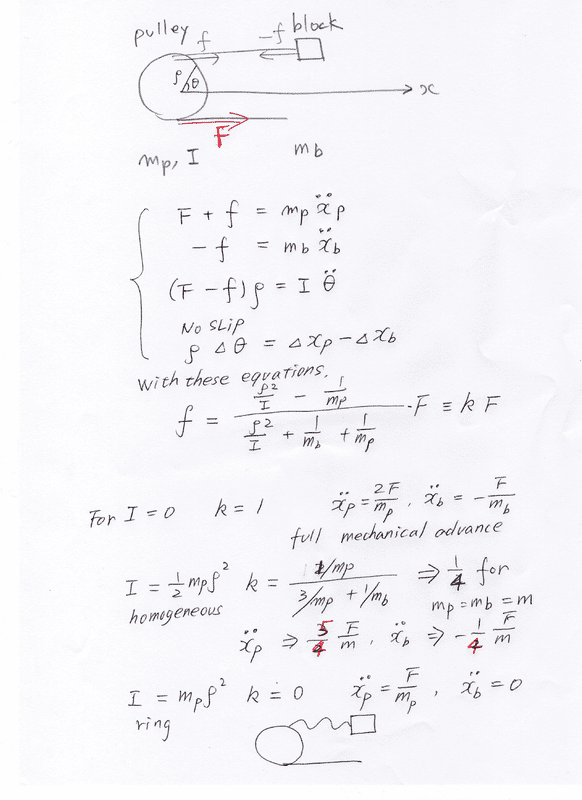 pulley f -f block
ρ θ x
F
mp, I mb
F + f = mp ẍp
-f = mb ẍb
(F - f) ρ = I θ̈
No SLip
ρ Δθ = Δxp - Δxb
With these equations.
f = (ρ²/I - 1/mp) / (ρ²/I + 1/mb + 1/mp) · F ≡ k F
For I = 0 k = 1 ẍp = 2F/mp, ẍb = - F/mb
full mechanical advance
I = 1/2 mp ρ² k = (1/mp) / (3/mp + 1/mb) ⇒ 1/4 for
homogeneous mp = mb = m
ẍp ⇒ 5/4 F/m, ẍb ⇒ - 1/4 F/m
I = mp ρ² k = 0 ẍp = F/mp, ẍb = 0
ring